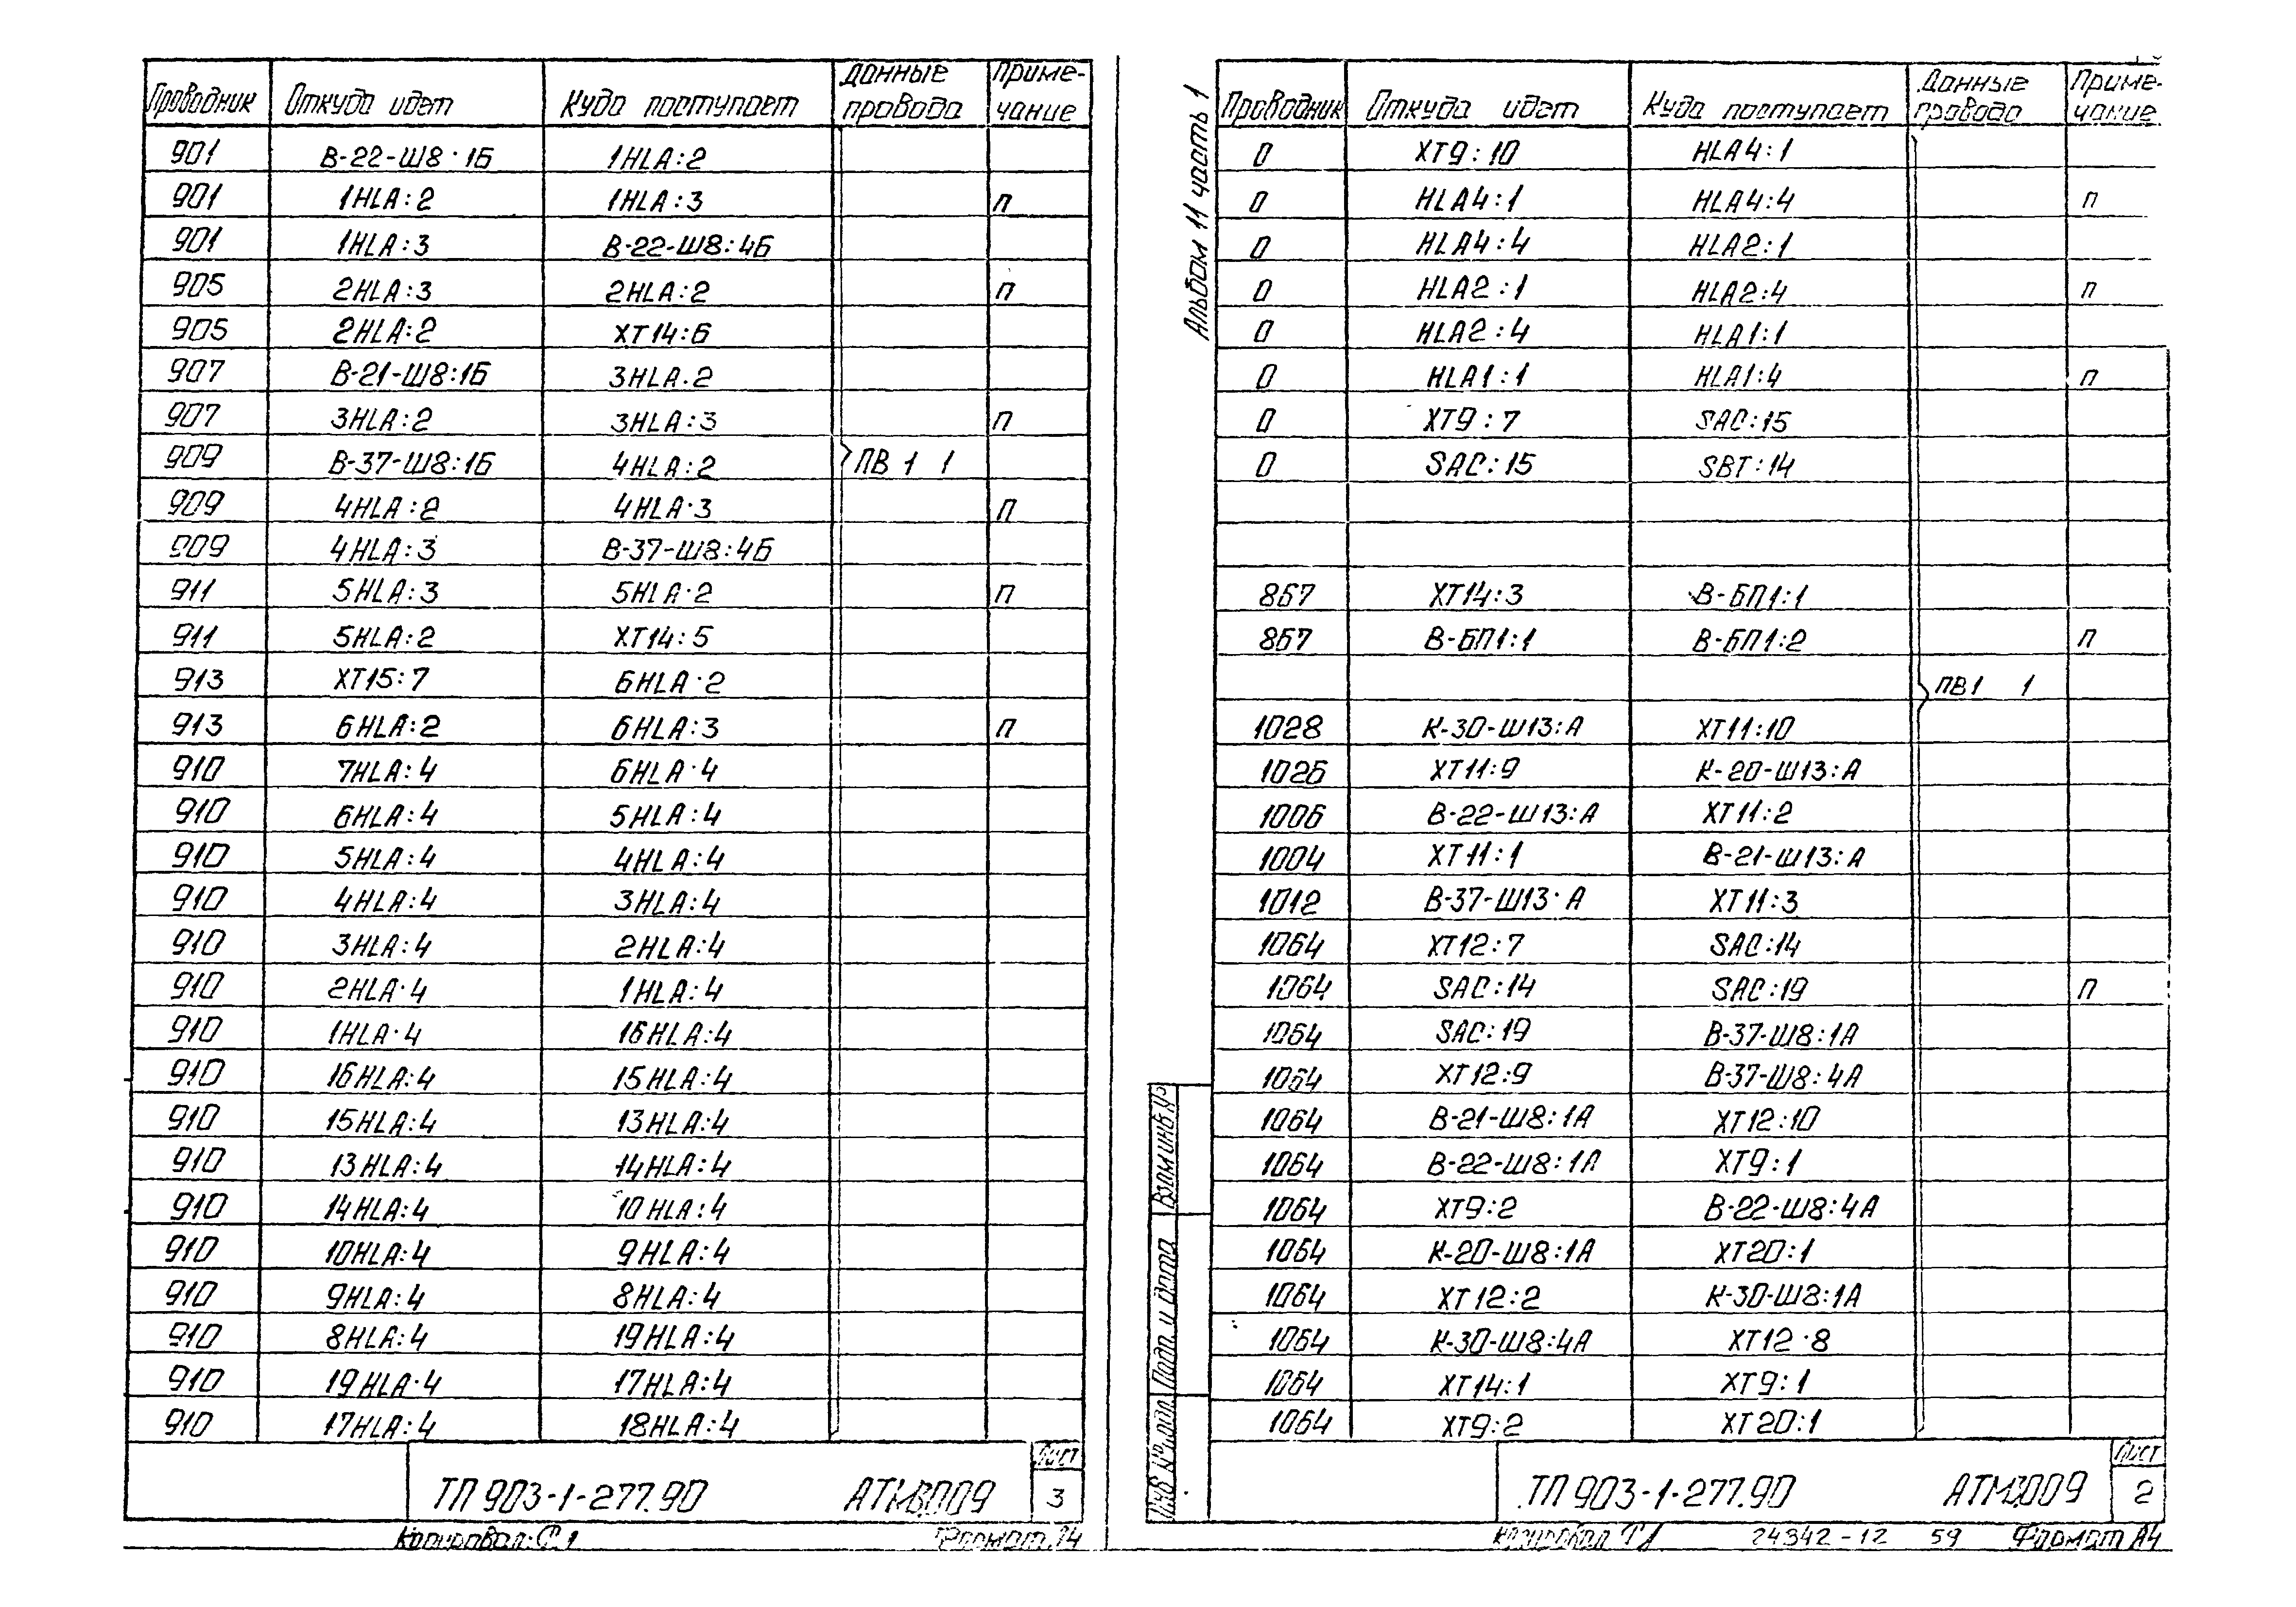 Проводник Откуда идет Куда поступает Данные провода Примечание
901 В-22-Ш8·1Б 1HLA:2
901 1HLA:2 1HLA:3 п
901 1HLA:3 В-22-Ш8:4Б
905 2HLA:3 2HLA:2 п
905 2HLA:2 XT14:6
907 В-21-Ш8:1Б 3HLA·2
907 3HLA:2 3HLA:3 п
909 В-37-Ш8:1Б 4HLA:2 ПВ 1 1
909 4HLA:2 4HLA·3 п
909 4HLA:3 В-37-Ш8:4Б
911 5HLA:3 5HLA·2 п
911 5HLA:2 XT14:5
913 XT15:7 6HLA·2
913 6HLA:2 6HLA:3 п
910 7HLA:4 6HLA·4
910 6HLA:4 5HLA:4
910 5HLA:4 4HLA:4
910 4HLA:4 3HLA:4
910 3HLA:4 2HLA:4
910 2HLA·4 1HLA:4
910 1HLA·4 16HLA:4
910 16HLA:4 15HLA:4
910 15HLA:4 13HLA:4
910 13HLA:4 14HLA:4
910 14HLA:4 10HLA:4
910 10HLA:4 9HLA:4
910 9HLA:4 8HLA:4
910 8HLA:4 19HLA:4
910 19HLA·4 17HLA:4
910 17HLA:4 18HLA:4
ТП 903-1-277.90 АТМ3.009 Лист 3
Копировал: Формат А4
Альбом 11 часть 1
Проводник Откуда идет Куда поступает Данные провода Примечание
0 XT9:10 HLA4:1
0 HLA4:1 HLA4:4 п
0 HLA4:4 HLA2:1
0 HLA2:1 HLA2:4 п
0 HLA2:4 HLA1:1
0 HLA1:1 HLA1:4 п
0 XT9:7 SAC:15
0 SAC:15 SBT:14
867 XT14:3 В-БП1:1
867 В-БП1:1 В-БП1:2 п
ПВ1 1
1028 К-30-Ш13:А XT11:10
1026 XT11:9 К-20-Ш13:А
1006 В-22-Ш13:А XT11:2
1004 XT11:1 В-21-Ш13:А
1012 В-37-Ш13·А XT11:3
1064 XT12:7 SAC:14
1064 SAC:14 SAC:19 п
1064 SAC:19 В-37-Ш8:1А
1064 XT12:9 В-37-Ш8:4А
1064 В-21-Ш8:1А XT12:10
1064 В-22-Ш8:1А XT9:1
1064 XT9:2 В-22-Ш8:4А
1064 К-20-Ш8:1А XT20:1
1064 XT12:2 К-30-Ш8:1А
1064 К-30-Ш8:4А XT12·8
1064 XT14:1 XT9:1
1064 XT9:2 XT20:1
Взам инв №
Подп и дата
Инв № подл
ТП 903-1-277.90 АТМ3.009 Лист 2
Копировал 24342-12 59 Формат А4